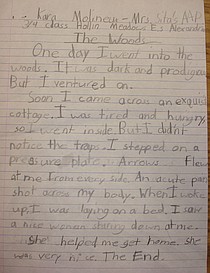 Kara Molinex - Mrs. Sito's AAP
3rd class Hollin Meadows E, Alexandria
The Woods
One day I went into the
woods. It was dark and prodigeous
But I ventured on.
Soon I came across an exquisit
cottage. I was tired and hungry,
so I went inside. But I didn't
notice the traps. I stepped on a
pressure plate. Arrows flew
at me from every side. An acute pain
shot across my body. When I woke
up, I was laying on a bed. I saw
a nice women staring down at me.
she helped me get home. she
was very nice. The End.